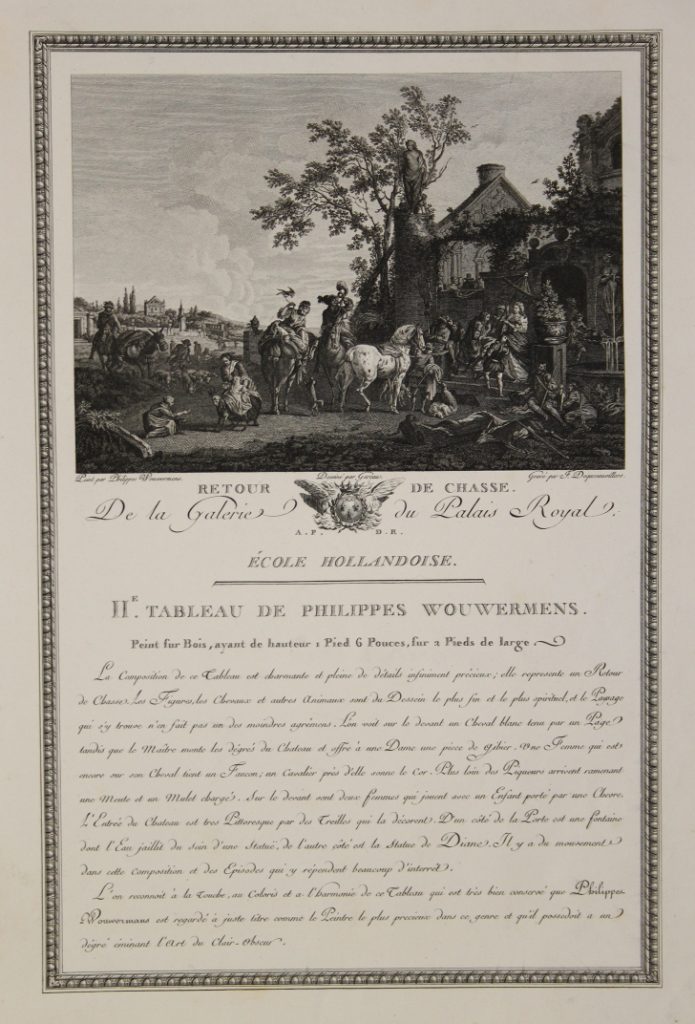 Peint par Philippes Wouwermens.
Dessiné par Gareau
Gravé par J. Dequevauviller.
RETOUR DE CHASSE.
De la Galerie du Palais Royal.
A. P. D. R.
ÉCOLE HOLLANDOISE.
IIE. TABLEAU DE PHILIPPES WOUWERMENS.
Peint sur Bois, ayant de hauteur 1 Pied 6 Pouces, sur 2 Pieds de large.
La Composition de ce Tableau est charmante et pleine de détails infiniment précieux; elle represente un Retour
de Chasse. Les Figures, les Chevaux et autres Animaux sont du Dessein le plus fin et le plus spirituel, et le Paysage
qui s'y trouve n'en fait pas un des moindres agrémens. L'on voit sur le devant un Cheval blanc tenu par un Page
tandis que le Maître monte les dégrés du Chateau et offre à une Dame une pièce de Gibier. Une Femme qui est
encore sur son Cheval tient un Faucon; un Cavalier près d'elle sonne le Cor. Plus loin des Piqueurs arrivent ramenant
une Meute et un Mulet chargés. Sur le devant sont deux femmes qui jouent avec un Enfant porté par une Chevre.
L'Entrée du Chateau est tres Pittoresque par des Treilles qui la décorent. D'un côté de la Porte est une fontaine
dont l'Eau jaillit du sein d'une Statuë, de l'autre côté est la Statue de Diane. Il y a du mouvement
dans cette Composition et des Episodes qui y répendent beaucoup d'interrêt.
L'on reconnoit à la Touche, au Coloris et a l'harmonie de ce Tableau qui est très bien conservé que Philippes
Wouwermans est regardé à juste titre comme le Peintre le plus precieux dans ce genre et qu'il possedoit a un
dégré éminant l'Art du Clair-Obscur.